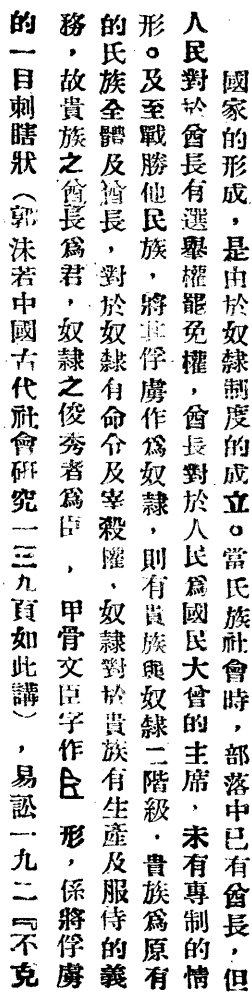 國家的形成，是由於奴隸制度的成立。當氏族社會時，部落中已有酋長，但
人民對於酋長有選舉權罷免權，酋長對於人民爲國民大會的主席，未有專制的情
形。及至戰勝他民族，將其俘虜作爲奴隸，則有貴族與奴隸二階級，貴族爲原有
的氏族全體及酋長，對於奴隸有命令及宰殺權，奴隸對於貴族有生產及服侍的義
務，故貴族之酋長爲君，奴隸之俊秀者爲臣，甲骨文臣字作 形，係將俘虜
的一目刺瞎狀（郭沫若中國古代社會研究一三九頁如此講），易訟一九二『不克